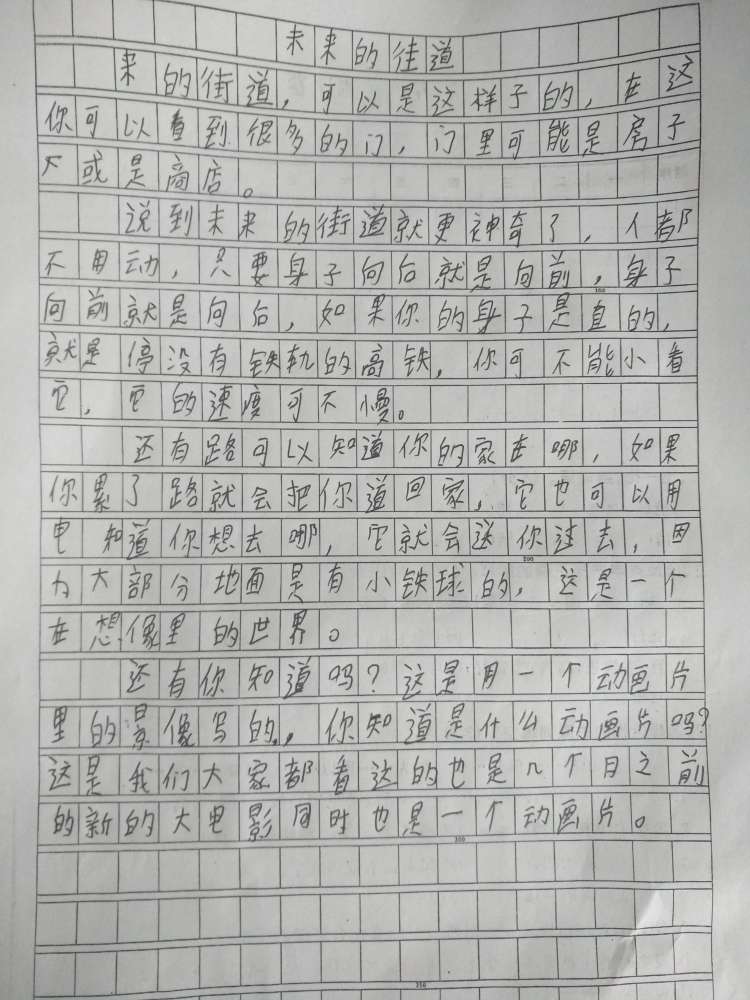 未来的街道
来的街道，可以是这样子的，在这
你可以看到很多的门，门里可能是房子
或是商店。
说到未来的街道就更神奇了，人都
不用动，只要身子向后就是向前，身子
向前就是向后，如果你的身子是直的，
就是停没有铁轨的高铁，你可不能小看
它，它的速度可不慢。
还有路可以知道你的家在哪，如果
你累了路就会把你道回家，它也可以用
电知道你想去哪，它就会送你过去，因
为大部分地面是有小铁球的，这是一个
在想像里的世界。
还有你知道吗？这是用一个动画片
里的景像写的，你知道是什么动画片吗？
这是我们大家都看达的也是几个月之前
的新的大电影同时也是一个动画片。
300
200
300
350